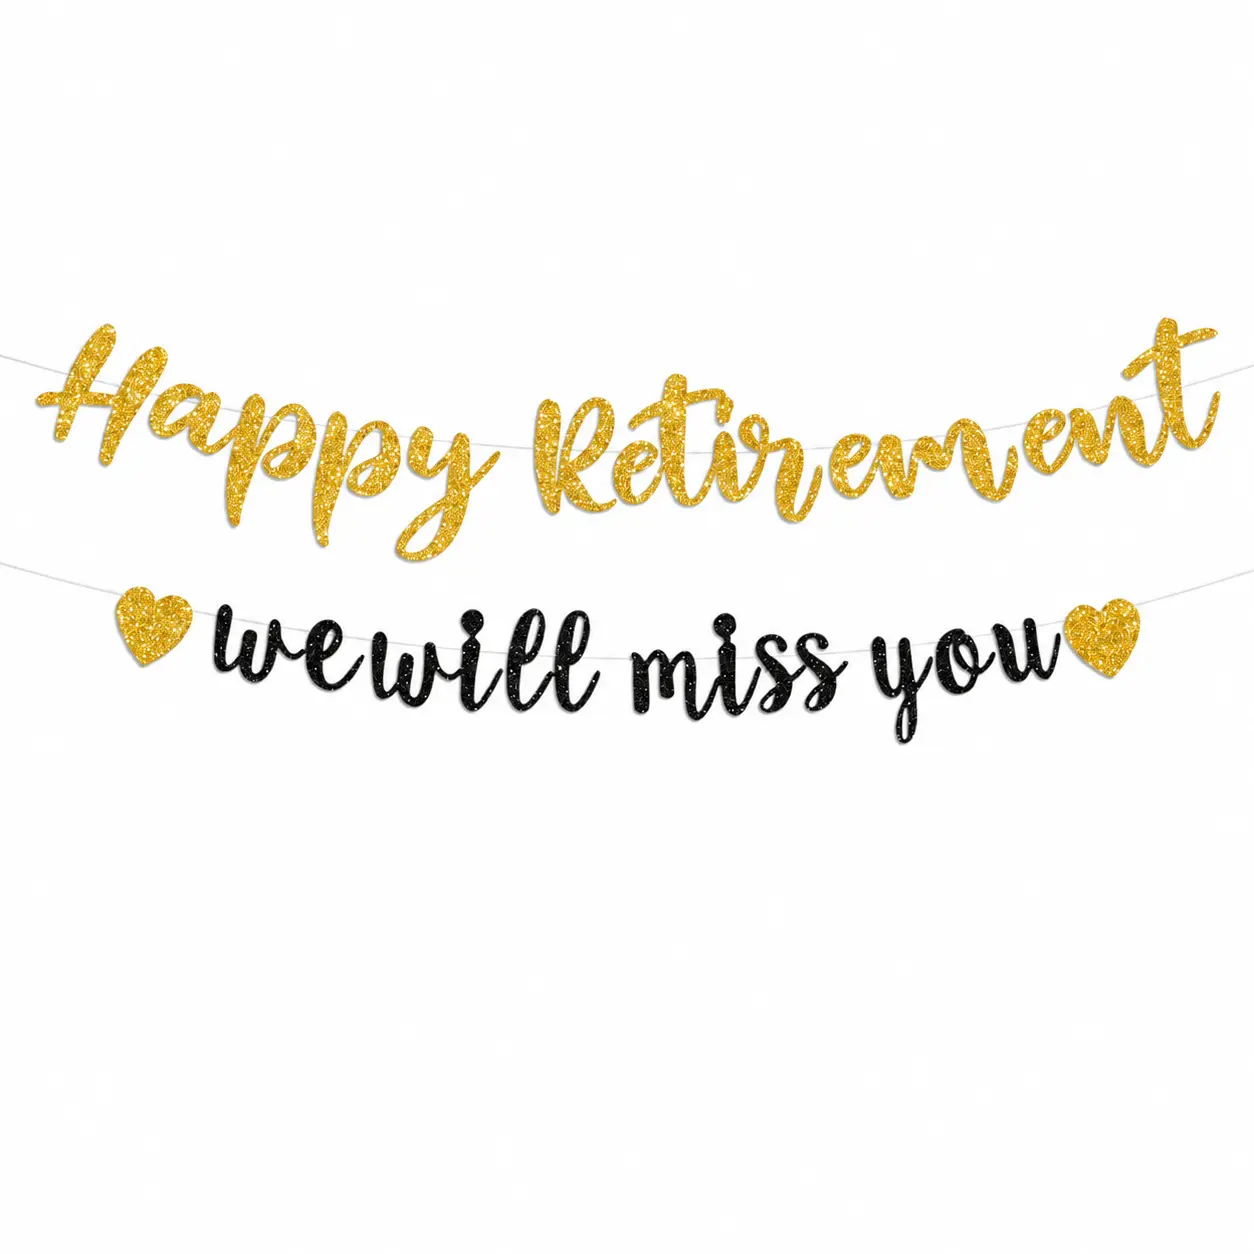 Happy Retirement
we will miss you